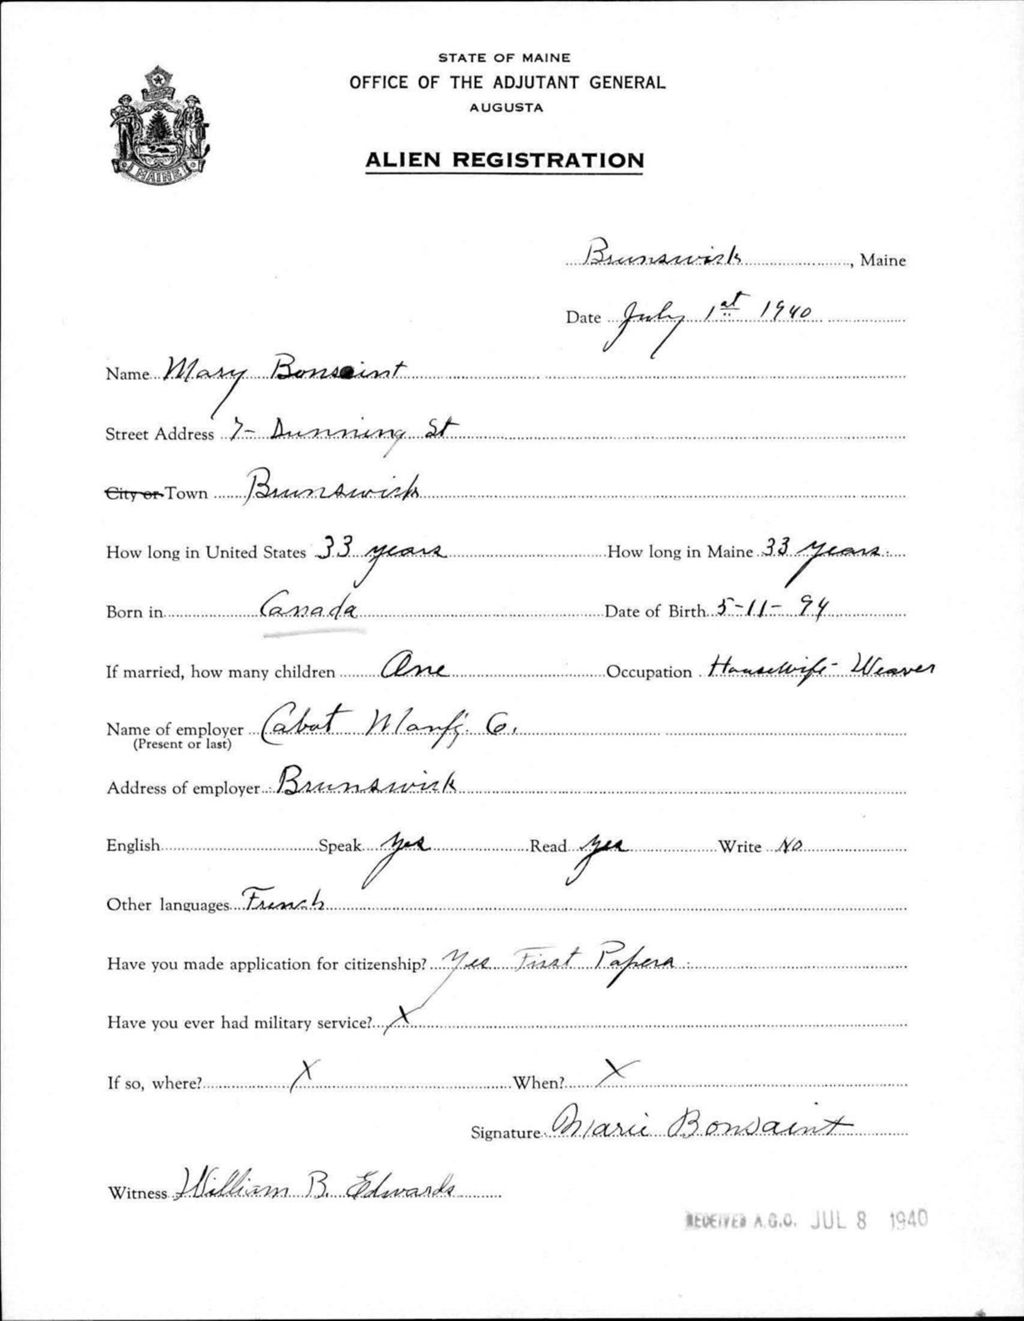 STATE OF MAINE
OFFICE OF THE ADJUTANT GENERAL
AUGUSTA
ALIEN REGISTRATION
MAINE
Brunswick, Maine
Date July 1st 1940
Name Mary Bonsaint
Street Address 7- Dunning St
City or Town Brunswick
How long in United States 33 years How long in Maine 33 years
Born in Canada Date of Birth 5-11-94
If married, how many children One Occupation Housewife- Weaver
Name of employer Cabot Manfg. Co.
(Present or last)
Address of employer Brunswick
English Speak yes Read yes Write No
Other languages French
Have you made application for citizenship? Yes First Papers
Have you ever had military service? X
If so, where? X When? X
Signature Marie Bonsaint
Witness William B. Edwards
RECEIVED A.G.O. JUL 8 1940